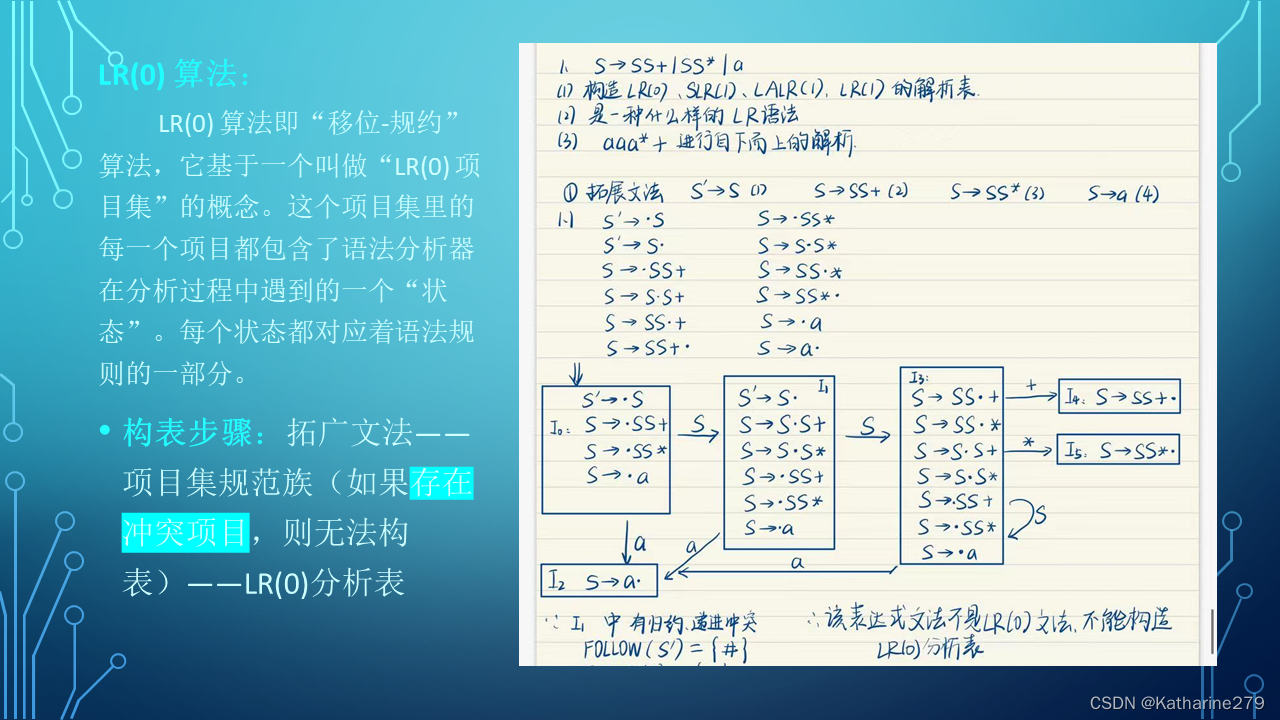 LR(0) 算法：
LR(0) 算法即“移位-规约”
算法，它基于一个叫做“LR(0) 项
目集”的概念。这个项目集里的
每一个项目都包含了语法分析器
在分析过程中遇到的一个“状
态”。每个状态都对应着语法规
则的一部分。
• 构表步骤：拓广文法——
项目集规范族（如果存在
冲突项目，则无法构
表）——LR(0)分析表
1. S→SS+|SS*|a
(1) 构造LR(0)、SLR(1)、LALR(1)、LR(1)的解析表.
(2) 是一种什么样的LR语法
(3) aaa*+ 进行自下而上的解析.
① 拓展文法 S'→S (1) S→SS+ (2) S→SS* (3) S→a (4)
1.1 S'→·S S→·SS*
S'→S· S→S·S*
S→·SS+ S→SS·*
S→S·S+ S→SS*·
S→SS·+ S→·a
S→SS+· S→a·
I0:
S'→·S
S→·SS+
S→·SS*
S→·a
S
I1
S'→S·
S→S·S+
S→S·S*
S→·SS+
S→·SS*
S→·a
S
I3:
S→SS·+
S→SS·*
S→S·S+
S→S·S*
S→·SS+
S→·SS*
S→·a
S
+
I4: S→SS+·
*
I5: S→SS*·
a
a
a
I2 S→a·
∵ I1 中有归约、递进冲突
FOLLOW(S')={#}
∴该表达式文法不是LR(0)文法,不能构造
LR(0)分析表
CSDN @Katharine279